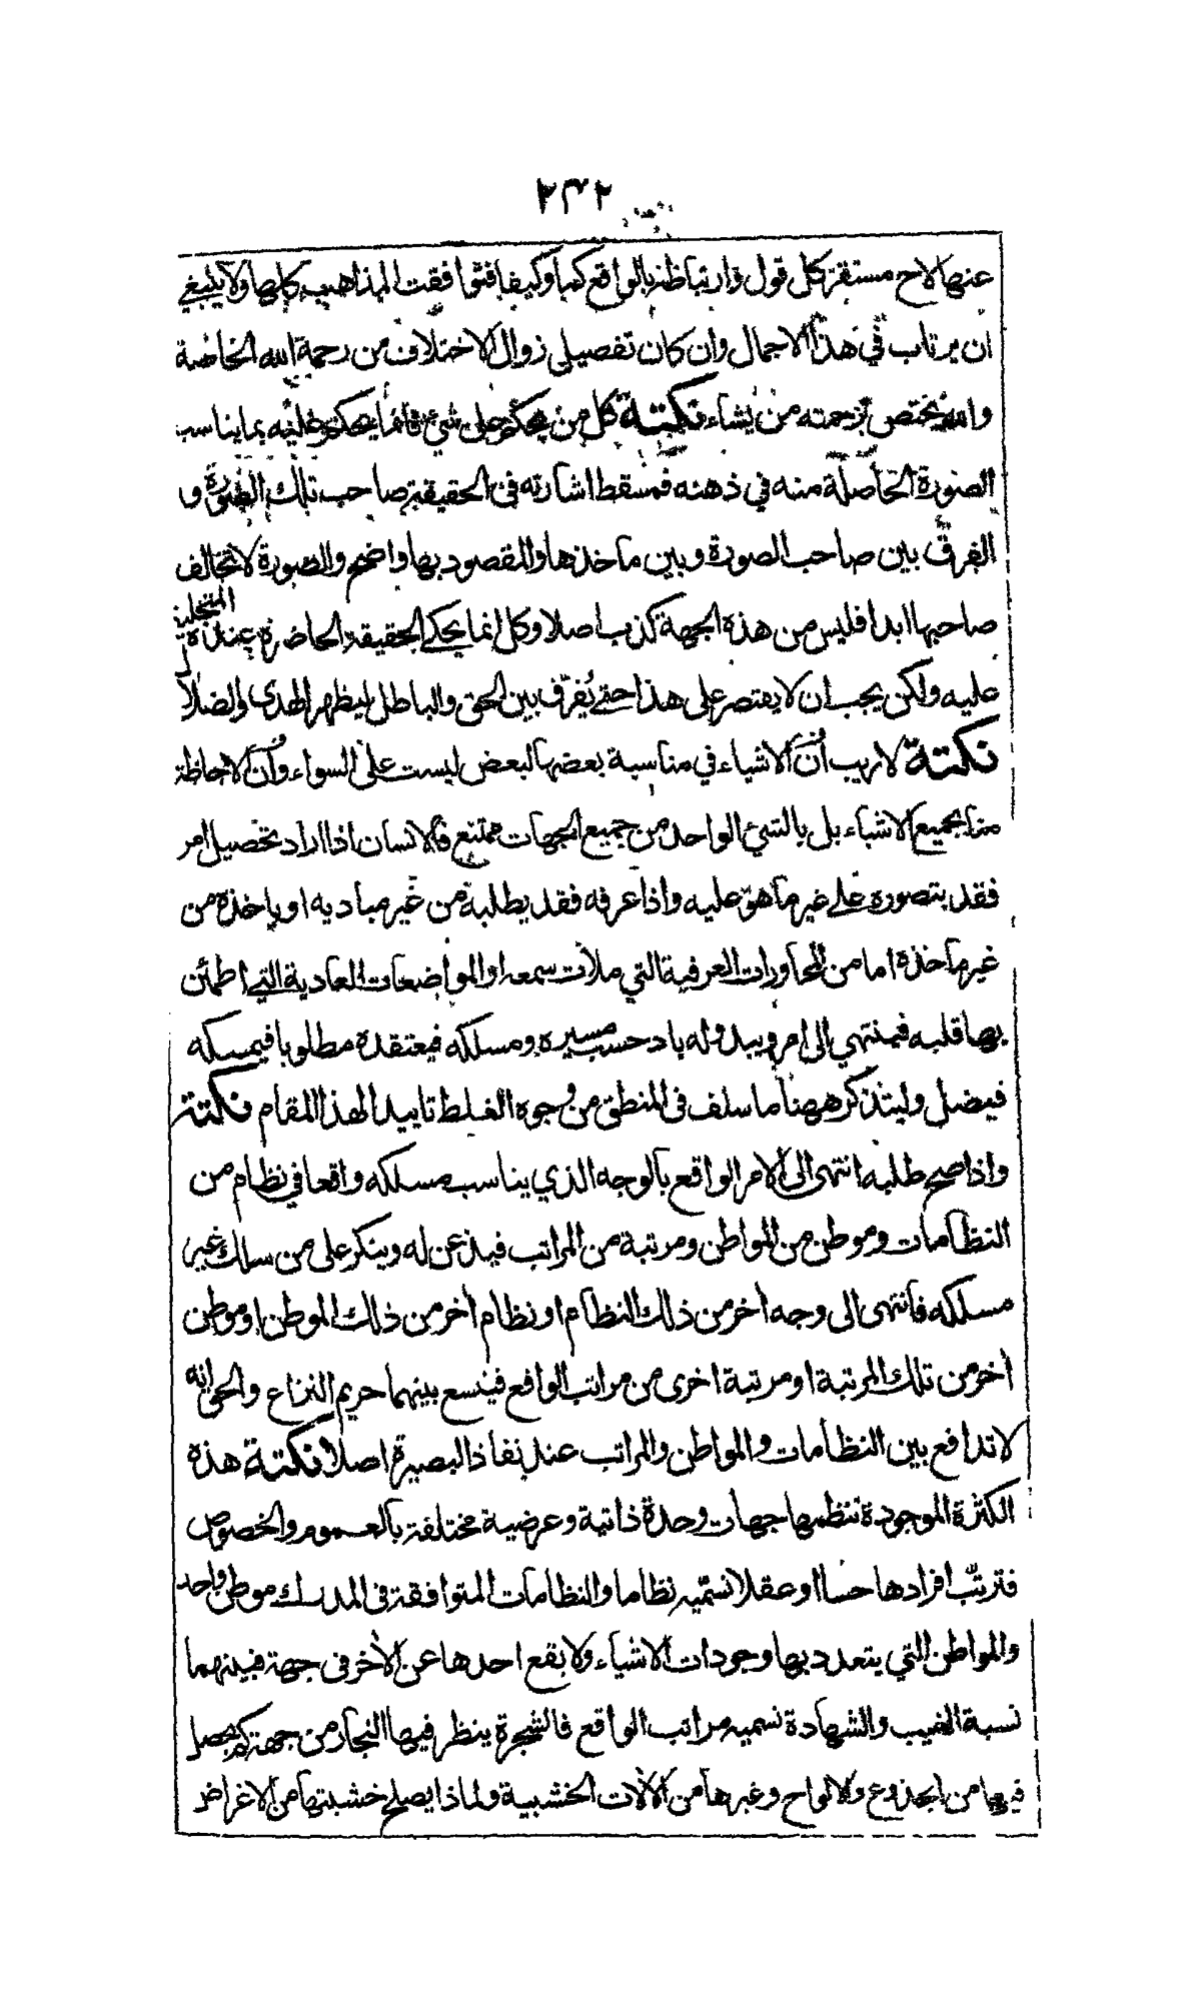 ٢٤٢
عنها لاح مستقر كل قول وارتباطه بالواقع كما وكيفا فتوافقت المذاهب كلها ولا ينبغي
ان يرتاب في هذا الاجمال وان كان تفصيلي زوال الاختلاف من رحمة الله الخاصة
والله يختص برحمته من يشاء نكتة كل من يحكم على شئ فانما يحكم عليه بما يناسب
الصورة الحاصلة منه في ذهنه فمسقط اشارته في الحقيقة صاحب تلك الصورة و
الفرق بين صاحب الصورة وبين ماخذها والمقصود بها واضح والصورة لا تخالف
صاحبها ابدا فليس من هذه الجهة كذب اصلا وكل انما يحكى الحقيقة الحاضرة عنده المتجلية
عليه ولكن يجب ان لا يقتصر على هذا حتى يفرق بين الحق والباطل ليظهر الهدى والضلال
نكتة لا ريب ان الاشياء في مناسبة بعضها لبعض ليست على السواء وان الاحاطة
منا بجميع الاشياء بل بالشئ الواحد من جميع الجهات ممتنع فالانسان اذا اراد تحصيل امر
فقد يتصوره على غير ما هو عليه واذا عرفه فقد يطلبه من غير مباديه او ياخذه من
غير ماخذه اما من المحاورات العرفية التي ملأت سمعه او المواضعات العادية التي اطمئن
بها قلبه فينتهي الى امر ويبدو له باد حسب مسيره ومسلكه فيعتقده مطلوبا فيمسكه
فيضل وليتذكر ههنا ما سلف في المنطق من وجوه الغلط تاييدا لهذا المقام نكتة
واذا صح طلبه انتهى الى الامر الواقع بالوجه الذي يناسب مسلكه واقعا في نظام من
النظامات وموطن من المواطن ومرتبة من المراتب فيذعن له وينكر على من سلك غير
مسلكه فانتهى الى وجه اخر من ذلك النظام او نظام اخر من ذلك الموطن او موطن
اخر من تلك المرتبة او مرتبة اخرى من مراتب الواقع فيتسع بينهما حريم النزاع والحق انه
لا تدافع بين النظامات والمواطن والمراتب عند نفاذ البصيرة اصلا نكتة هذه
الكثرة الموجودة تنظمها جهات وحدة ذاتية وعرضية مختلفة بالعموم والخصوص
فترتب افرادها حسا او عقلا نسميه نظاما والنظامات المتوافقة في المدرك موطن واحد
والمواطن التي يتعدد بها وجودات الاشياء ولا يقع احدها عن الأخر في جهة فبينهما
نسبة الغيب والشهادة نسميه مراتب الواقع فالشجرة ينظر فيها النجار من جهة كم يحصل
فيها من الجذوع والالواح وغيرها من الألات الخشبية ولماذا يصلح خشبتها من الاغراض